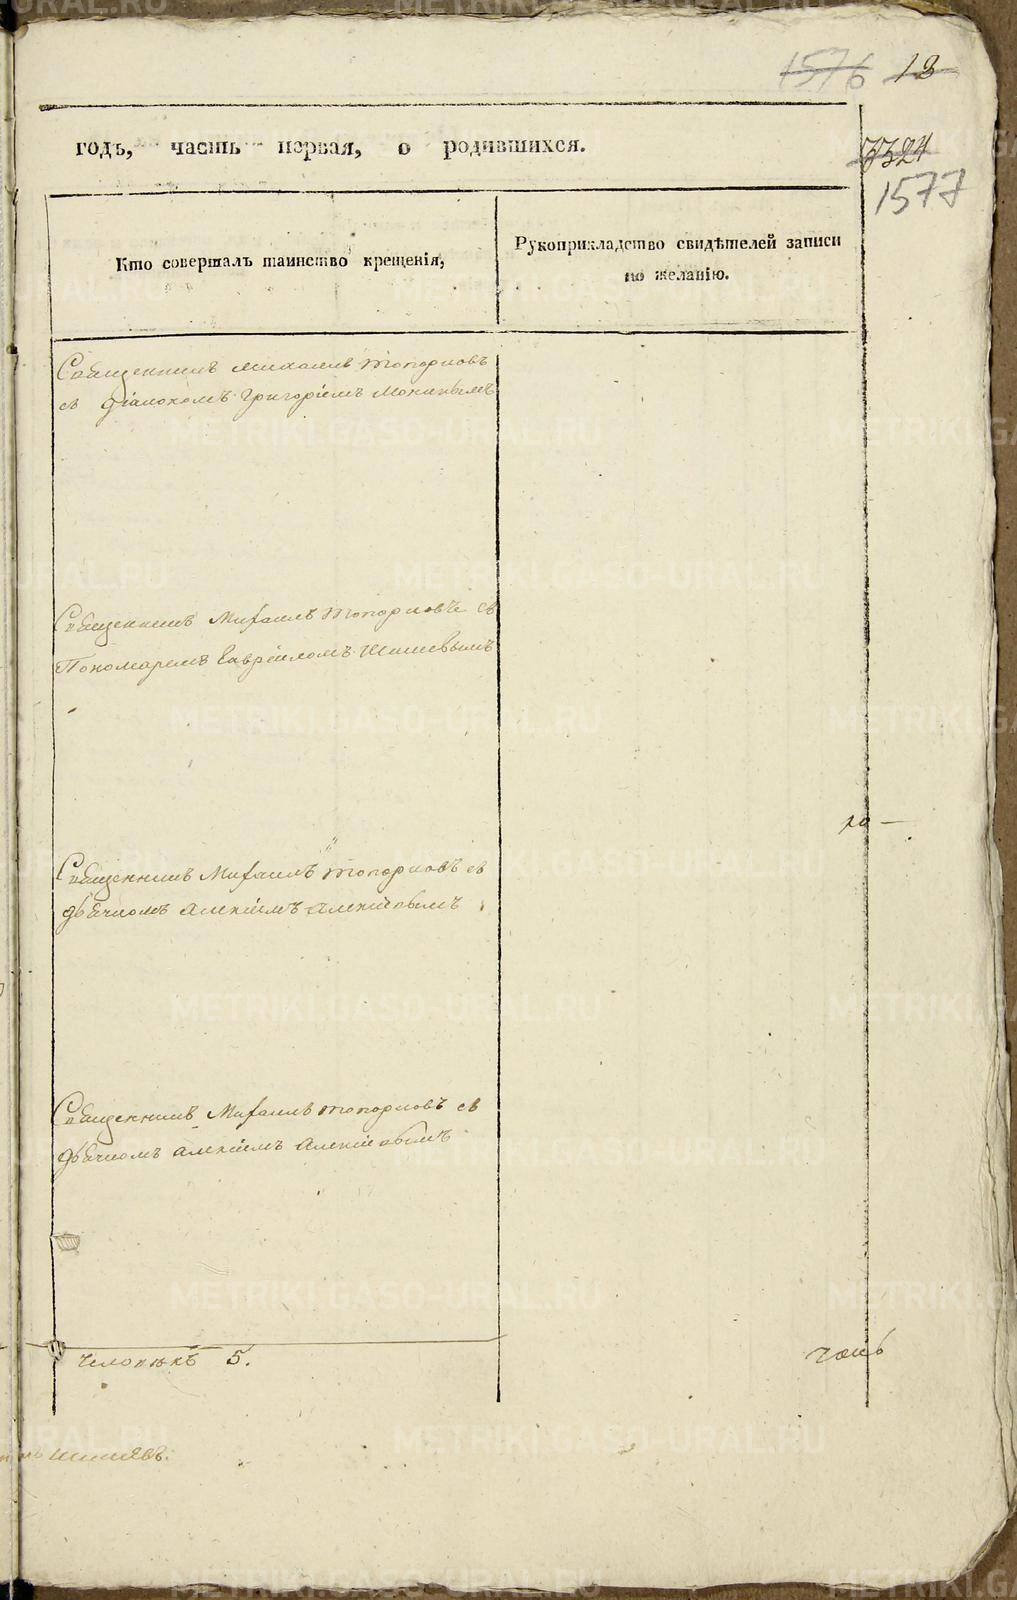 1576 13
годъ, часть первая, о родившихся.
7324
1577
Кто совершалъ таинство крещенія,
Рукоприкладство свидѣтелей записи
по желанію.
Священникъ Михаилъ Топорковъ
съ діакономъ Григоріемъ
Священникъ Михаилъ Топорковъ съ
Пономаремъ Гавріиломъ Шишевымъ
Священникъ Михаилъ Топорковъ съ
дьячкомъ Алексіемъ Алексіевымъ
Священникъ Михаилъ Топорковъ съ
дьячкомъ Алексіемъ Алексіевымъ
Человѣкъ 5.
METRIKI.GASO-URAL.RU